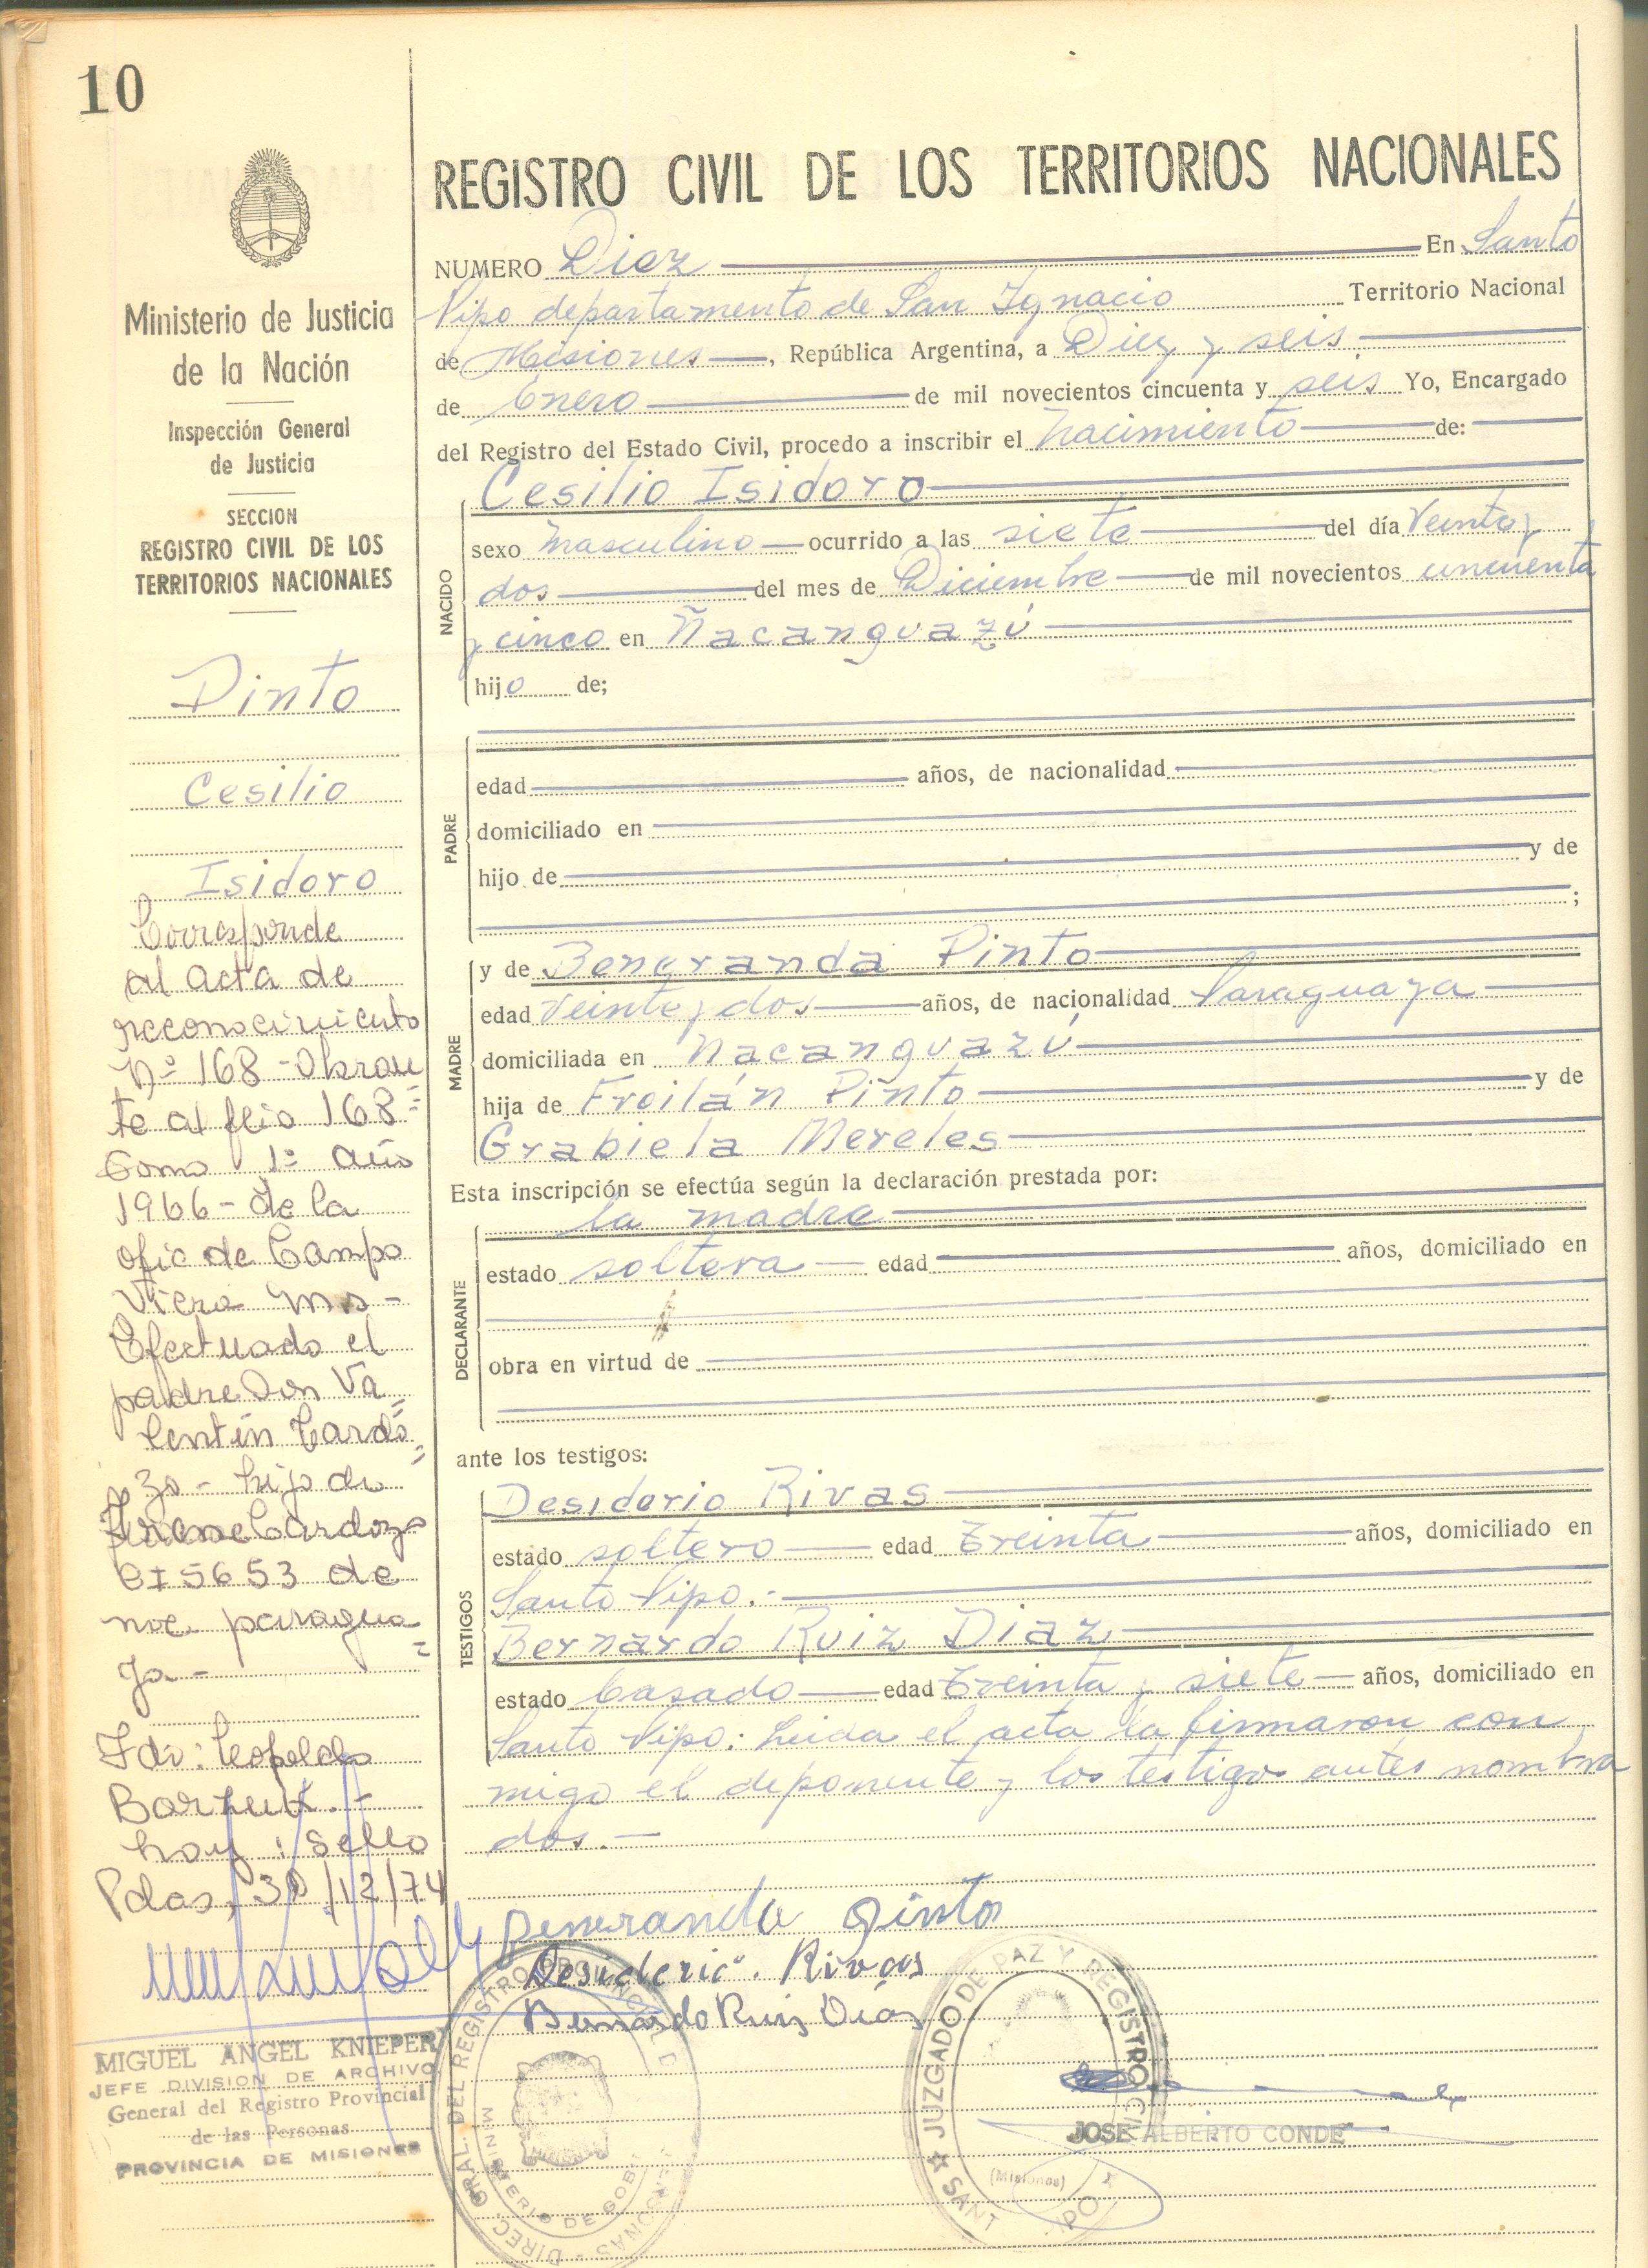 10
Ministerio de Justicia
de la Nación
Inspección General
de Justicia
SECCION
REGISTRO CIVIL DE LOS
TERRITORIOS NACIONALES
Pinto
Cesilio
Isidoro
Corresponde
al acta de
reconocimiento
Nº 168 - Obran
te al flio 168=
tomo 1º año
1966 - de la
ofic de Campo
Viera Mns -
Efectuado el
padre Don Va=
lentín Cardo=
zo - hijo de
Cardozo
CI 5653 de
nac. paragua=
ya -
Fdo: Leopoldo
hoy: Sello
Pdas, 30/12/74
MIGUEL ANGEL KNIEPER
JEFE DIVISION DE ARCHIVO
General del Registro Provincial
de las Personas
PROVINCIA DE MISIONES
REGISTRO CIVIL DE LOS TERRITORIOS NACIONALES
NUMERO Diez En Santo
Pipo departamento de San Ygnacio Territorio Nacional
de Misiones, República Argentina, a Diez y seis
de Enero de mil novecientos cincuenta y seis Yo, Encargado
del Registro del Estado Civil, procedo a inscribir el Nacimiento de:
NACIDO
Cesilio Isidoro
sexo Masculino ocurrido a las siete del día Veinte y
dos del mes de Diciembre de mil novecientos cincuenta
y cinco en Ñacanguazú
hijo de;
PADRE
edad años, de nacionalidad
domiciliado en
hijo de y de
;
MADRE
y de Beneranda Pinto
edad Veinte y dos años, de nacionalidad Paraguaya
domiciliada en Ñacanguazú
hija de Froilán Pinto y de
Grabiela Mereles
Esta inscripción se efectúa según la declaración prestada por:
DECLARANTE
la madre
estado soltera edad años, domiciliado en
obra en virtud de
ante los testigos:
TESTIGOS
Desiderio Rivas
estado soltero edad treinta años, domiciliado en
Santo Pipo.-
Bernardo Ruiz Diaz
estado Casado edad treinta y siete años, domiciliado en
Santo Pipo: Leida el acta la firmaron con
migo el deponente y los testigos antes nombra
dos.-
Beneranda Pinto
Desiderio. Rivas
Bernardo Ruis Dias
DIREC. GRAL. DEL REGISTRO PROVINCIAL D
PERSONAS
MINISTERIO DE GOB
JUZGADO DE PAZ Y REGISTRO CI
SANT IPO
(Misiones)
JOSE ALBERTO CONDE